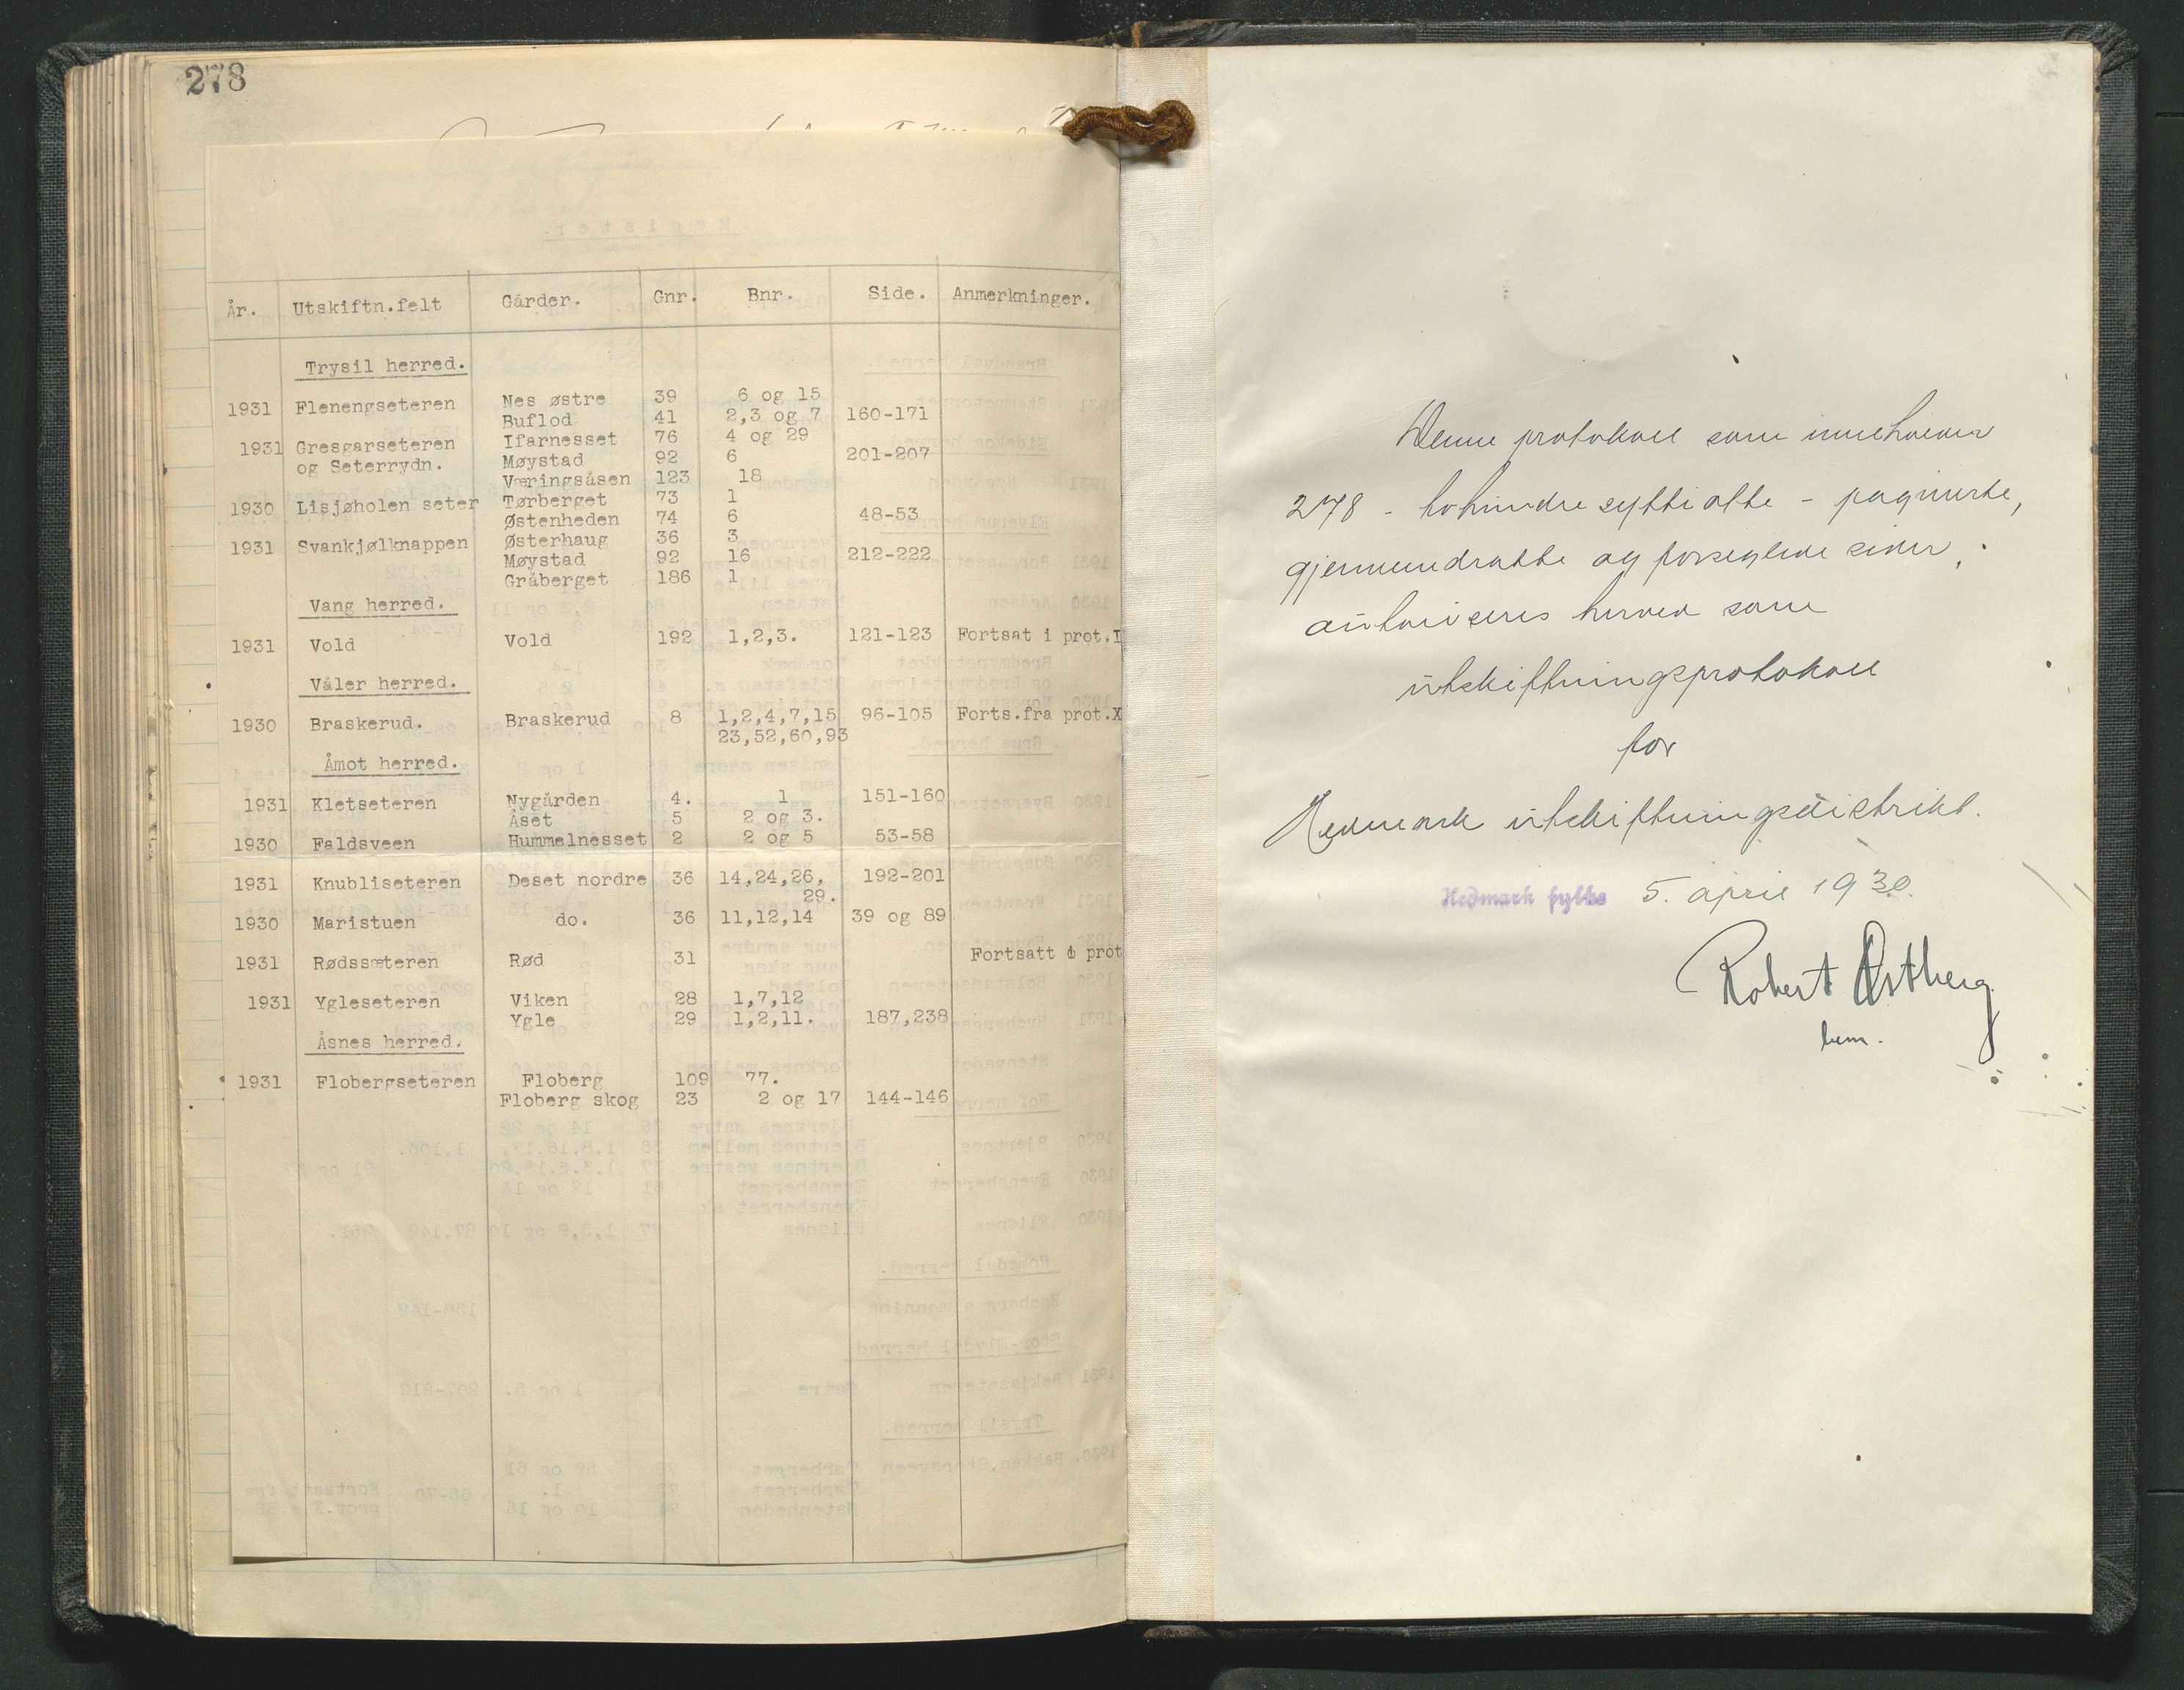 278
År. Utskiftn.felt Gårder. Gnr. Bnr. Side. Anmerkninger.
Trysil herred.
1931 Flenengseteren Nes østre 39 6 og 15
Buflod 41 2,3 og 7 160-171
1931 Gresgarseteren Ifarnesset 76 4 og 29
og Seterrydn. Møystad 92 6 201-207
Væringsåsen 123 18
1930 Lisjøholen seter Tørberget 73 1
Østenheden 74 6 48-53
1931 Svankjølknappen Østerhaug 36 3
Møystad 92 16 212-222
Gråberget 186 1
Vang herred.
1931 Vold Vold 192 1,2,3. 121-123 Fortsat i prot.I
Våler herred.
1930 Braskerud. Braskerud 8 1,2,4,7,15 96-105 Forts.fra prot.X
23,52,60,93
Åmot herred.
1931 Kletseteren Nygården 4. 1 151-160
Åset 5 2 og 3.
1930 Faldsveen Hummelnesset 2 2 og 5 53-58
1931 Knubliseteren Deset nordre 36 14,24,26, 192-201
29.
1930 Maristuen do. 36 11,12,14 39 og 89
1931 Rødssæteren Rød 31 Fortsatt i prot
1931 Ygleseteren Viken 28 1,7,12
Ygle 29 1,2,11. 187,238
Åsnes herred.
1931 Flobergseteren Floberg 109 77.
Floberg skog 23 2 og 17 144-146
Denne protokoll som inneholder
278 - tohundre sytti otte - paginerte,
gjennemdratte og forseglede sider,
autoriseres herved som
utskiftningsprotokoll
for
Hedmark utskiftningsdistrikt.
Hedmark fylke 5. april 1930.
Robert Østberg
bem.